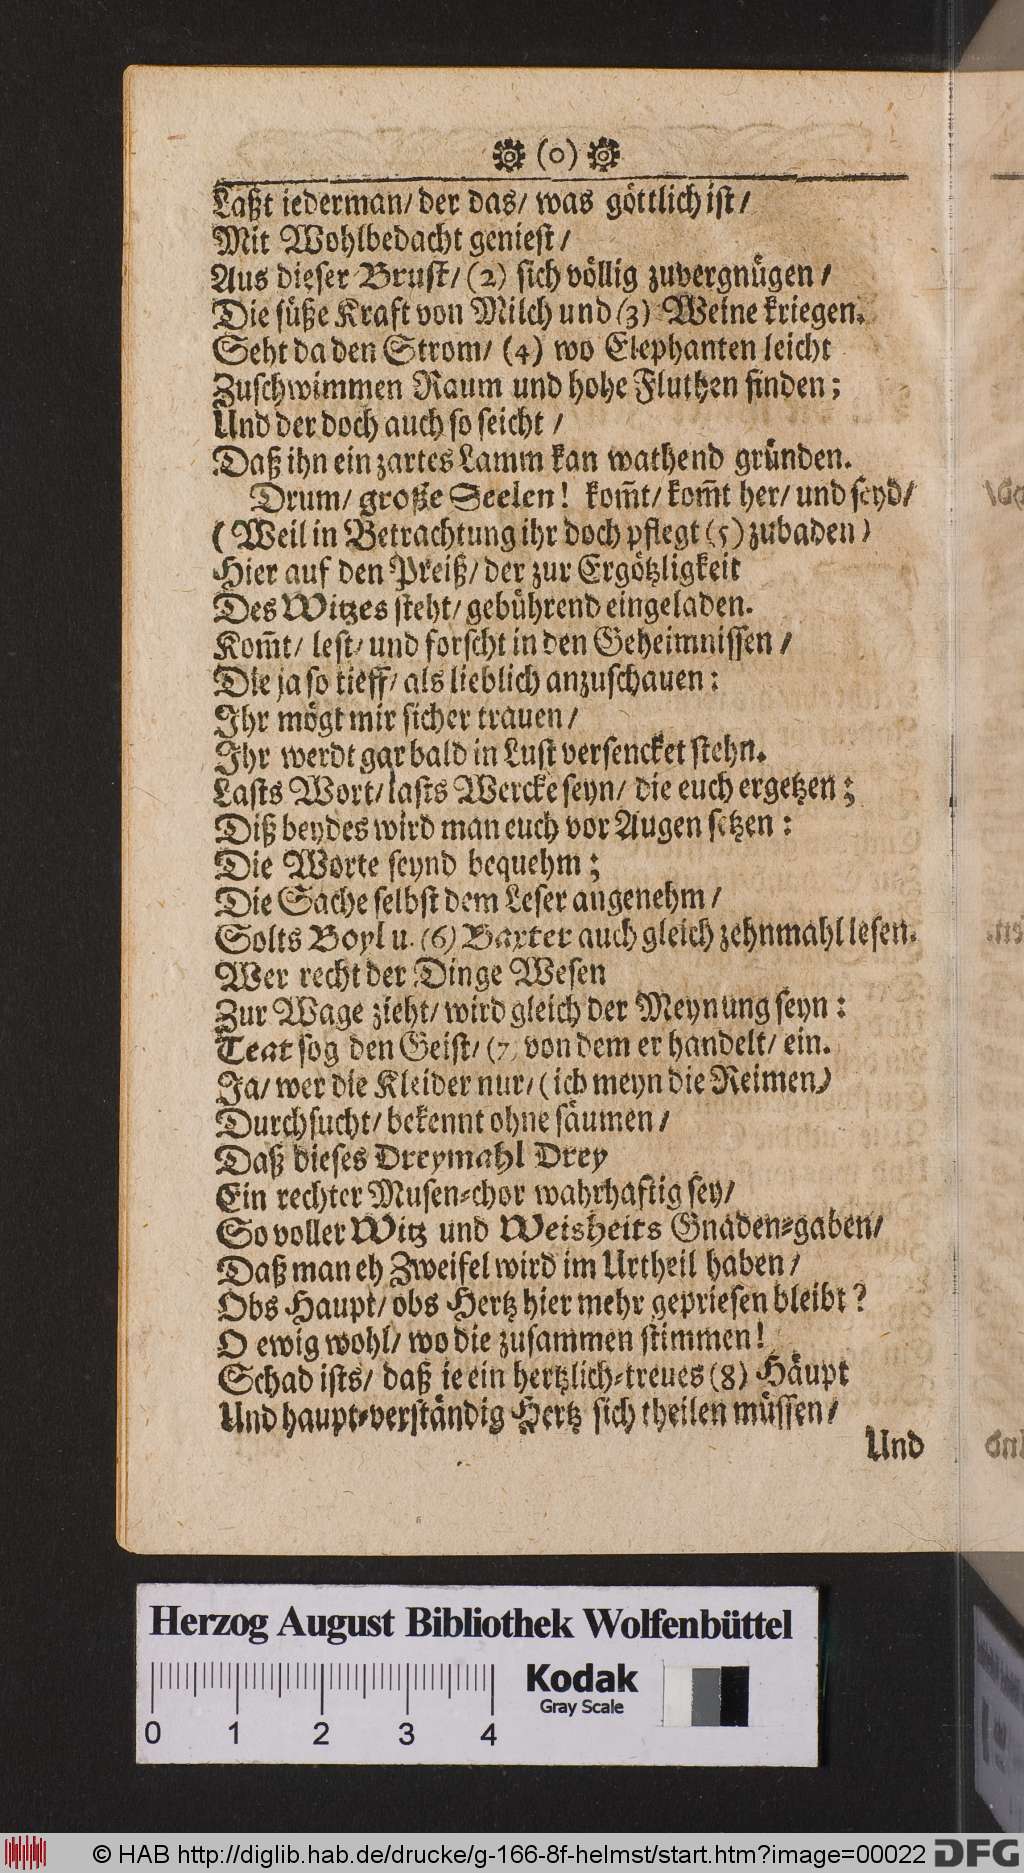 (o)
Laßt iederman/ der das/ was göttlich ist/
Mit Wohlbedacht geniest/
Aus dieser Brust/ (2) sich völlig zuvergnügen/
Die süße Kraft von Milch und (3) Weine kriegen.
Seht da den Strom/ (4) wo Elephanten leicht
Zuschwimmen Raum und hohe Fluthen finden;
Und der doch auch so seicht/
Daß ihn ein zartes Lamm kan wathend gründen.
Drum/ große Seelen! kom̃t/ kom̃t her/ und seyd/
(Weil in Betrachtung ihr doch pflegt (5) zubaden)
Hier auf den Preiß/ der zur Ergötzligkeit
Des Witzes steht/ gebührend eingeladen.
Kom̃t/ lest/ und forscht in den Geheimnissen/
Die ja so tieff/ als lieblich anzuschauen:
Ihr mögt mir sicher trauen/
Ihr werdt gar bald in Lust versencket stehn.
Lasts Wort/ lasts Wercke seyn/ die euch ergetzen;
Diß beydes wird man euch vor Augen setzen:
Die Worte seynd bequehm;
Die Sache selbst dem Leser angenehm/
Solts Boyl u. (6) Baxter auch gleich zehnmahl lesen.
Wer recht der Dinge Wesen
Zur Wage zieht/ wird gleich der Meynung seyn:
Teat sog den Geist/ (7) von dem er handelt/ ein.
Ja/ wer die Kleider nur/ (ich meyn die Reimen)
Durchsucht/ bekennt ohne säumen/
Daß dieses Dreymahl Drey
Ein rechter Musen-chor wahrhaftig sey/
So voller Witz und Weisheits Gnaden-gaben/
Daß man eh Zweifel wird im Urtheil haben/
Obs Haupt/ obs Hertz hier mehr gepriesen bleibt?
O ewig wohl/ wo die zusammen stimmen!
Schad ists/ daß ie ein hertzlich-treues (8) Häupt
Und haupt-verständig Hertz sich theilen müssen/
Und
Herzog August Bibliothek Wolfenbüttel
Kodak
Gray Scale
0 1 2 3 4
© HAB http://diglib.hab.de/drucke/g-166-8f-helmst/start.htm?image=00022 DFG